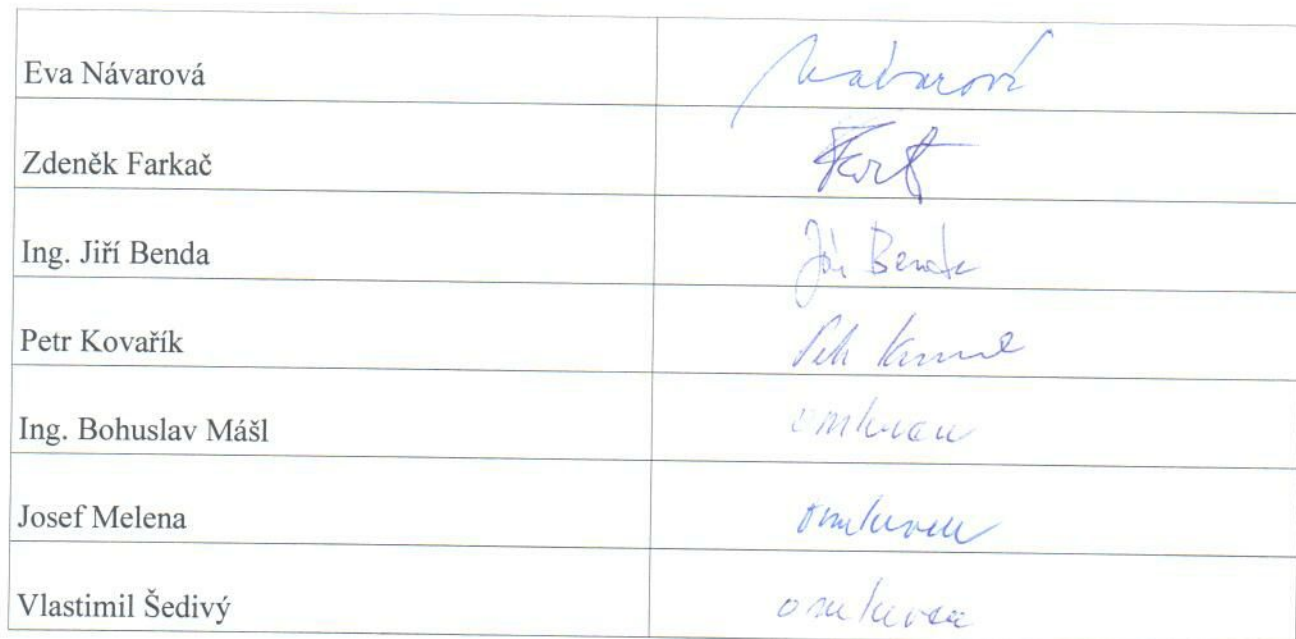 Eva Návarová Návarová
Zdeněk Farkač
Ing. Jiří Benda Jiří Benda
Petr Kovařík Petr
Ing. Bohuslav Mášl omluven
Josef Melena omluven
Vlastimil Šedivý omluven